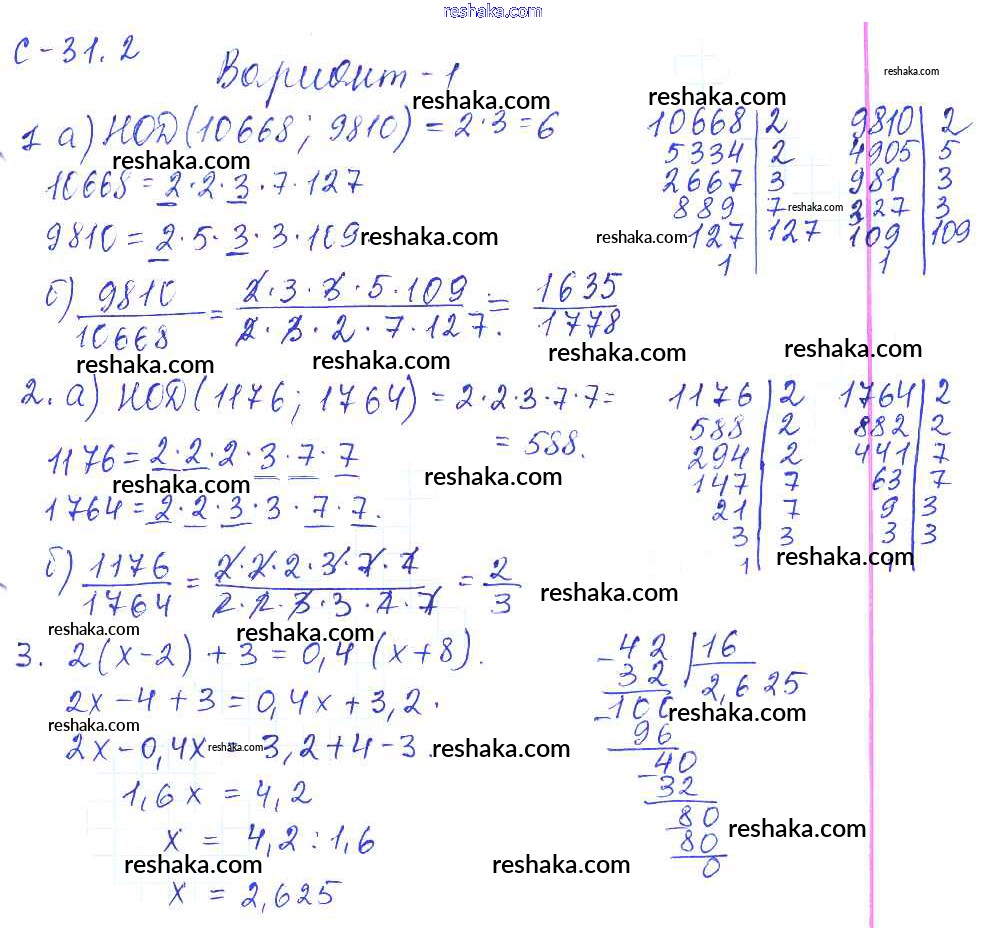 reshaka.com
С-31.2
Вариант-1
reshaka.com
reshaka.com
reshaka.com
1 а) НОД(10668; 9810) = 2·3=6
reshaka.com
10668= 2·2·3·7·127
9810 = 2·5·3·3·109
reshaka.com
10668 | 2
5334 | 2
2667 | 3
889 | 7
127 | 127
1
reshaka.com
reshaka.com
9810 | 2
4905 | 5
981 | 3
327 | 3
109 | 109
1
б) 9810/10668 = 2·3·3·5·109/2·3·2·7·127. = 1635/1778
reshaka.com
reshaka.com
reshaka.com
2. а) НОД(1176; 1764) = 2·2·3·7·7=
= 588.
1176= 2·2·2·3·7·7
reshaka.com
reshaka.com
1764= 2·2·3·3·7·7.
1176 | 2
588 | 2
294 | 2
147 | 7
21 | 7
3 | 3
1
1764 | 2
882 | 2
441 | 7
63 | 7
9 | 3
3 | 3
1
reshaka.com
б) 1176/1764 = 2·2·2·3·7·7/2·2·3·3·7·7 = 2/3
reshaka.com
reshaka.com
reshaka.com
3. 2(х-2) + 3 = 0,4 (х+8).
2х-4+3=0,4х+3,2.
reshaka.com
2х-0,4х reshaka.com 3,2+4-3.
reshaka.com
1,6х = 4,2
х = 4,2:1,6
reshaka.com
х = 2,625
-42 | 16
32 | 2,625
-100
reshaka.com
96
-40
32
-80
80
0
reshaka.com
reshaka.com